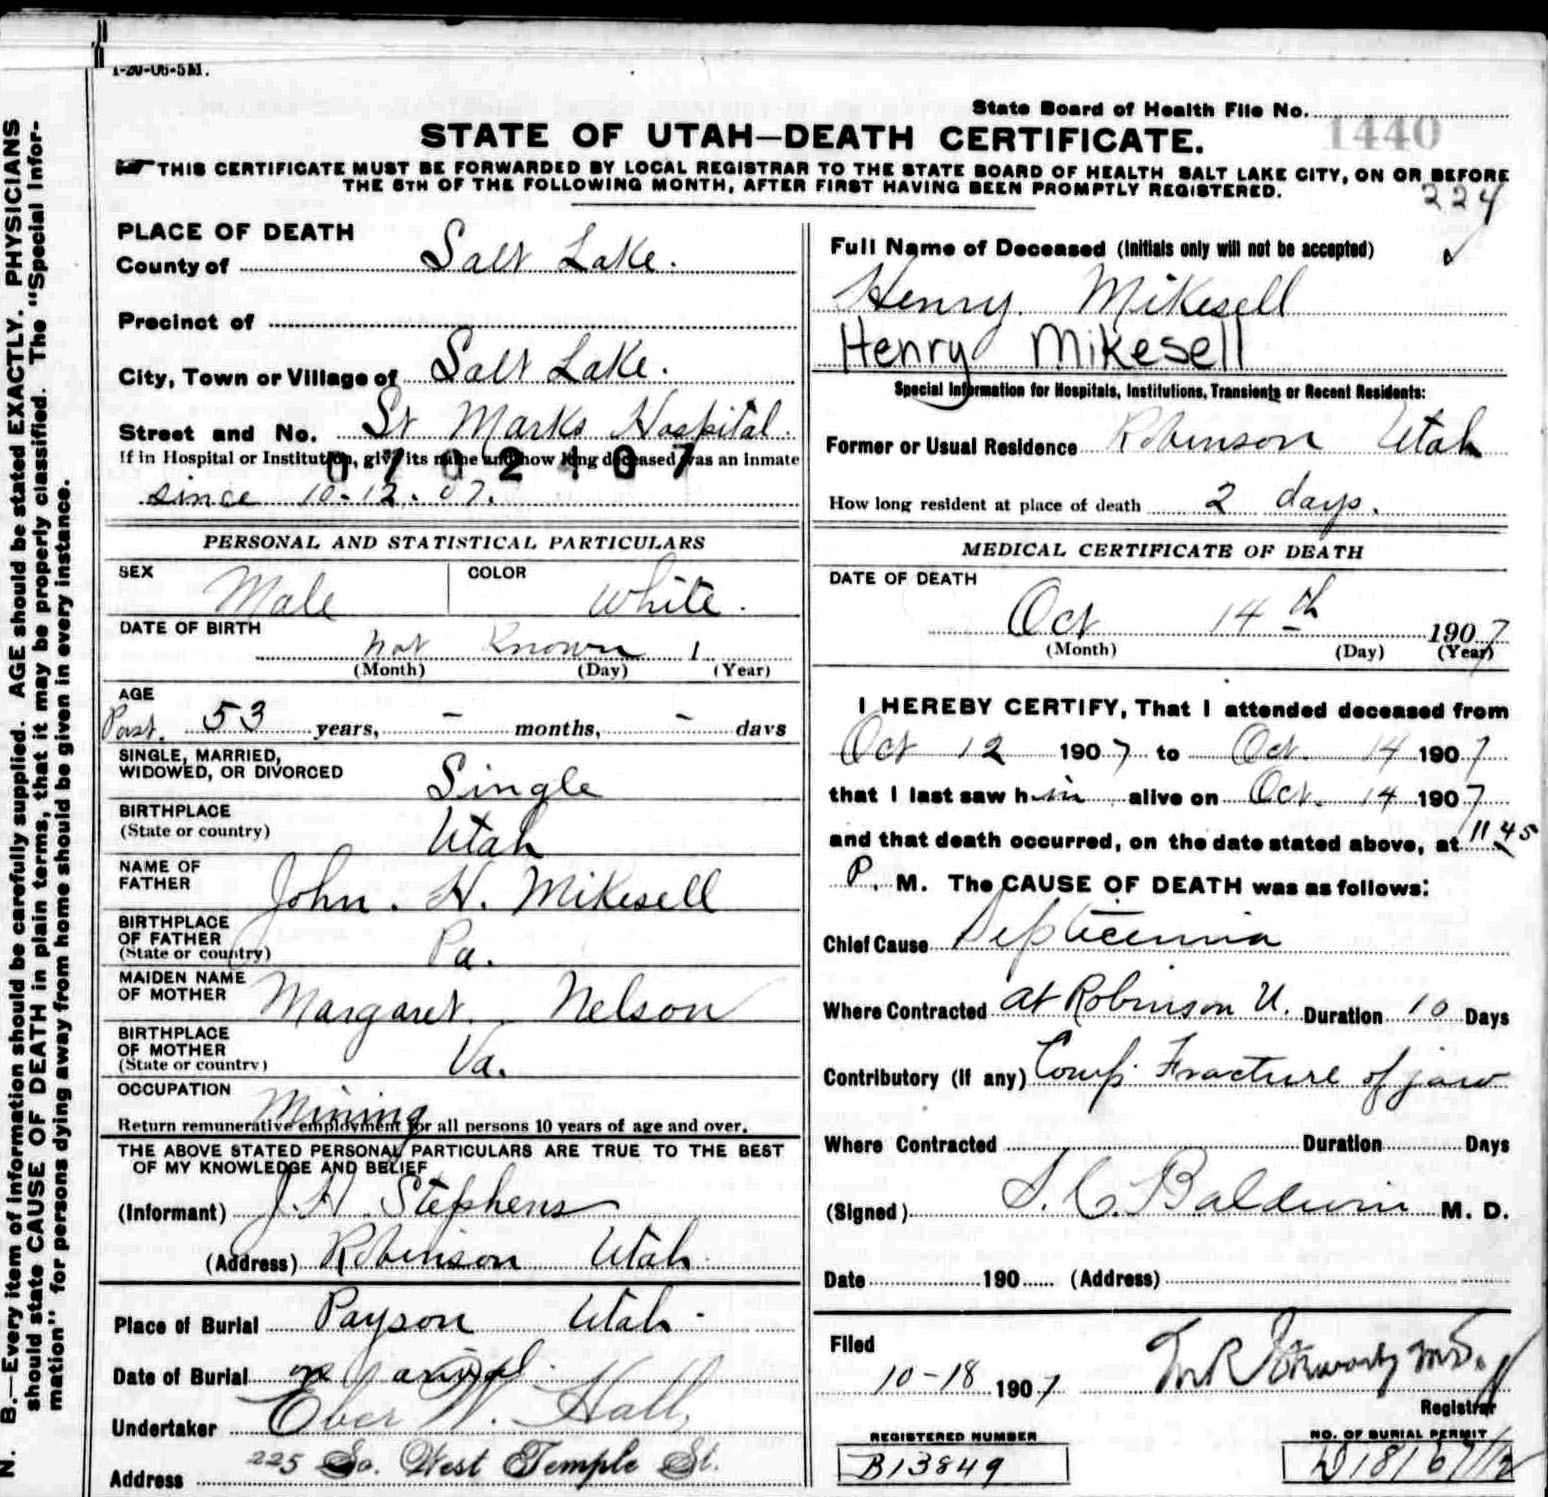 1-20-06-5M.
State Board of Health File No. 1440
STATE OF UTAH—DEATH CERTIFICATE.
THIS CERTIFICATE MUST BE FORWARDED BY LOCAL REGISTRAR TO THE STATE BOARD OF HEALTH SALT LAKE CITY, ON OR BEFORE
THE 5TH OF THE FOLLOWING MONTH, AFTER FIRST HAVING BEEN PROMPTLY REGISTERED.
224
N. B.—Every item of information should be carefully supplied. AGE should be stated EXACTLY. PHYSICIANS
should state CAUSE OF DEATH in plain terms, that it may be properly classified. The "Special Infor-
mation" for persons dying away from home should be given in every instance.
PLACE OF DEATH
County of Salt Lake.
Precinct of
City, Town or Village of Salt Lake.
Street and No. St Marks Hospital.
If in Hospital or Institution, give its name and how long deceased was an inmate
0702407
since 10-12-07.
PERSONAL AND STATISTICAL PARTICULARS
SEX Male COLOR White.
DATE OF BIRTH
not Known 1
(Month) (Day) (Year)
AGE
Past. 53 years, - months, - days
SINGLE, MARRIED,
WIDOWED, OR DIVORCED Single
BIRTHPLACE
(State or country) Utah
NAME OF
FATHER John. H. Mikesell
BIRTHPLACE
OF FATHER
(State or country) Pa.
MAIDEN NAME
OF MOTHER Margaret Nelson
BIRTHPLACE
OF MOTHER
(State or country) Va.
OCCUPATION Mining
Return remunerative employment for all persons 10 years of age and over.
THE ABOVE STATED PERSONAL PARTICULARS ARE TRUE TO THE BEST
OF MY KNOWLEDGE AND BELIEF
(Informant) J. H. Stephens
(Address) Robinson Utah.
Place of Burial Payson Utah.
Date of Burial on arival.
Undertaker Eber W. Hall,
Address 225 So. West Temple St.
Full Name of Deceased (Initials only will not be accepted)
Henry Mikesell
Henry Mikesell
Special Information for Hospitals, Institutions, Transients or Recent Residents:
Former or Usual Residence Robinson Utah
How long resident at place of death 2 days.
MEDICAL CERTIFICATE OF DEATH
DATE OF DEATH
Oct 14th 1907
(Month) (Day) (Year)
I HEREBY CERTIFY, That I attended deceased from
Oct 12 1907 to Oct. 14 1907
that I last saw him alive on Oct. 14 1907
and that death occurred, on the date stated above, at 11 45
P. M. The CAUSE OF DEATH was as follows:
Chief Cause Septicemia
Where Contracted at Robinson U. Duration 10 Days
Contributory (if any) Comp. Fracture of jaw
Where Contracted Duration Days
(Signed) S. C. Baldwin M. D.
Date 190 (Address)
Filed
10-18 1907
Registrar
REGISTERED NUMBER
B13849
NO. OF BURIAL PERMIT